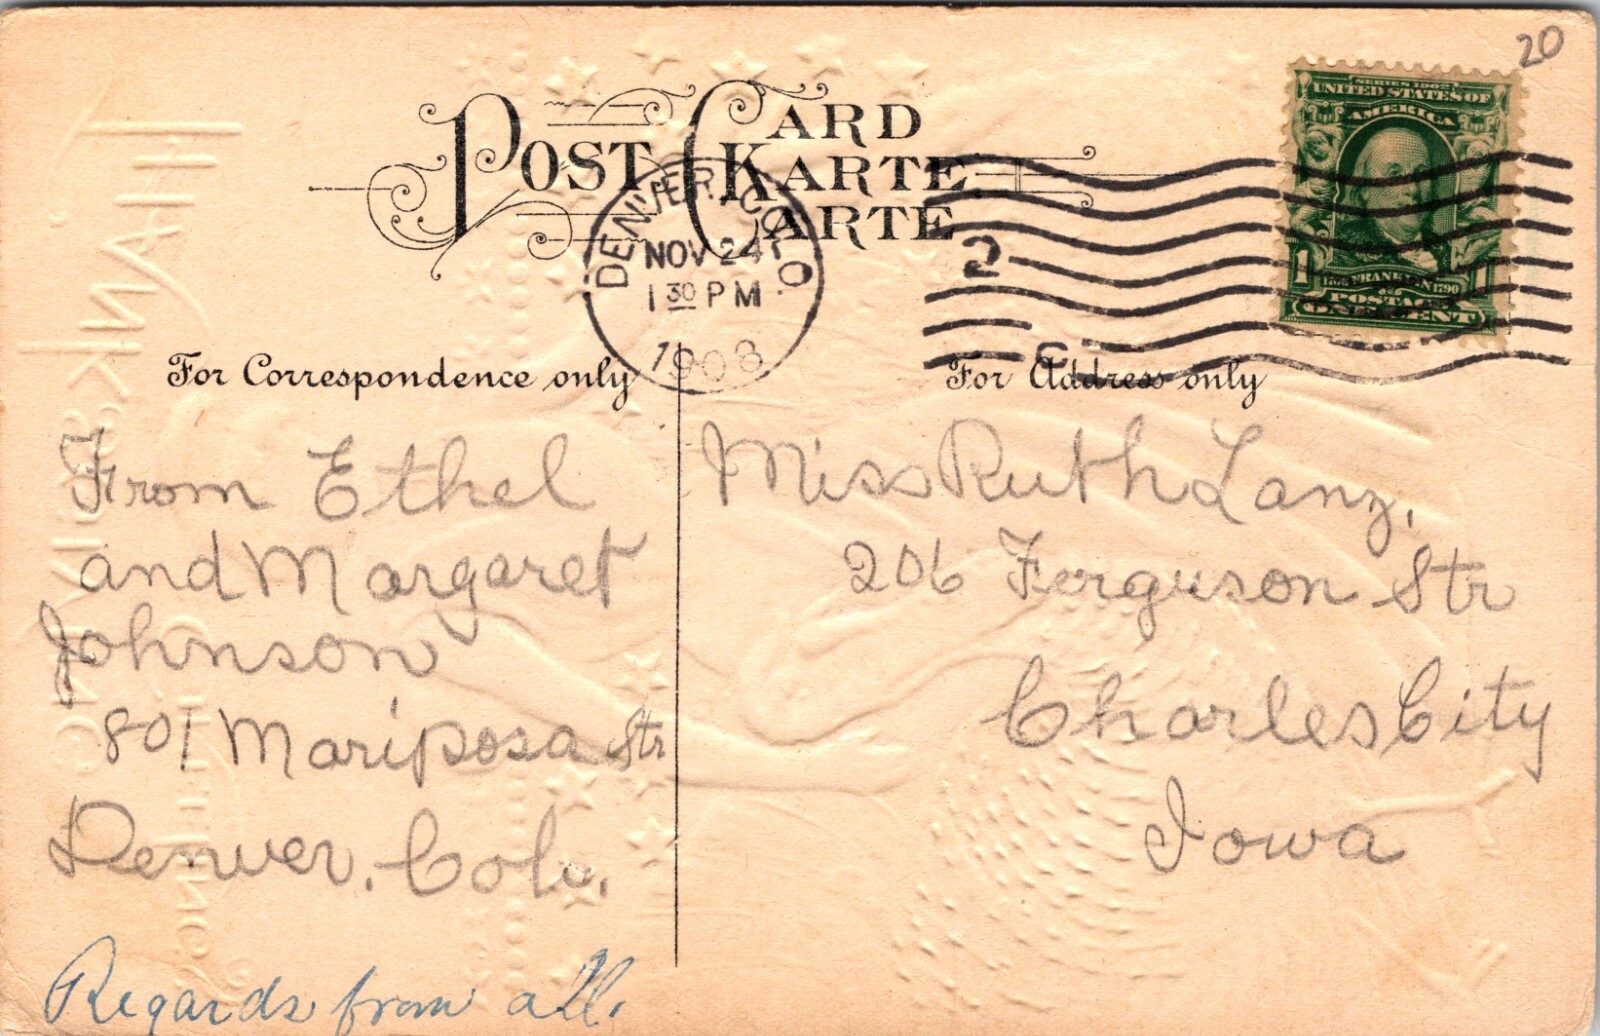 20
POST CARD
KARTE
CARTE
SERIES 1902
UNITED STATES OF
AMERICA
1 FRANKLIN 1790 1
POSTAGE
ONE CENT
DENVER, COLO.
NOV 24
1 30 PM
1908
2
For Correspondence only
For Address only
From Ethel
and Margaret
Johnson
801 Mariposa Str
Denver, Colo.
Regards from all.
Miss Ruth Lanz,
206 Ferguson Str
Charles City
Iowa